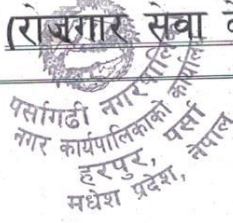 (रोजगार सेवा
पर्सागढी नगरपालिका
नगर कार्यपालिकाको कार्यालय
हरपुर, पर्सा
मधेश प्रदेश, नेपाल